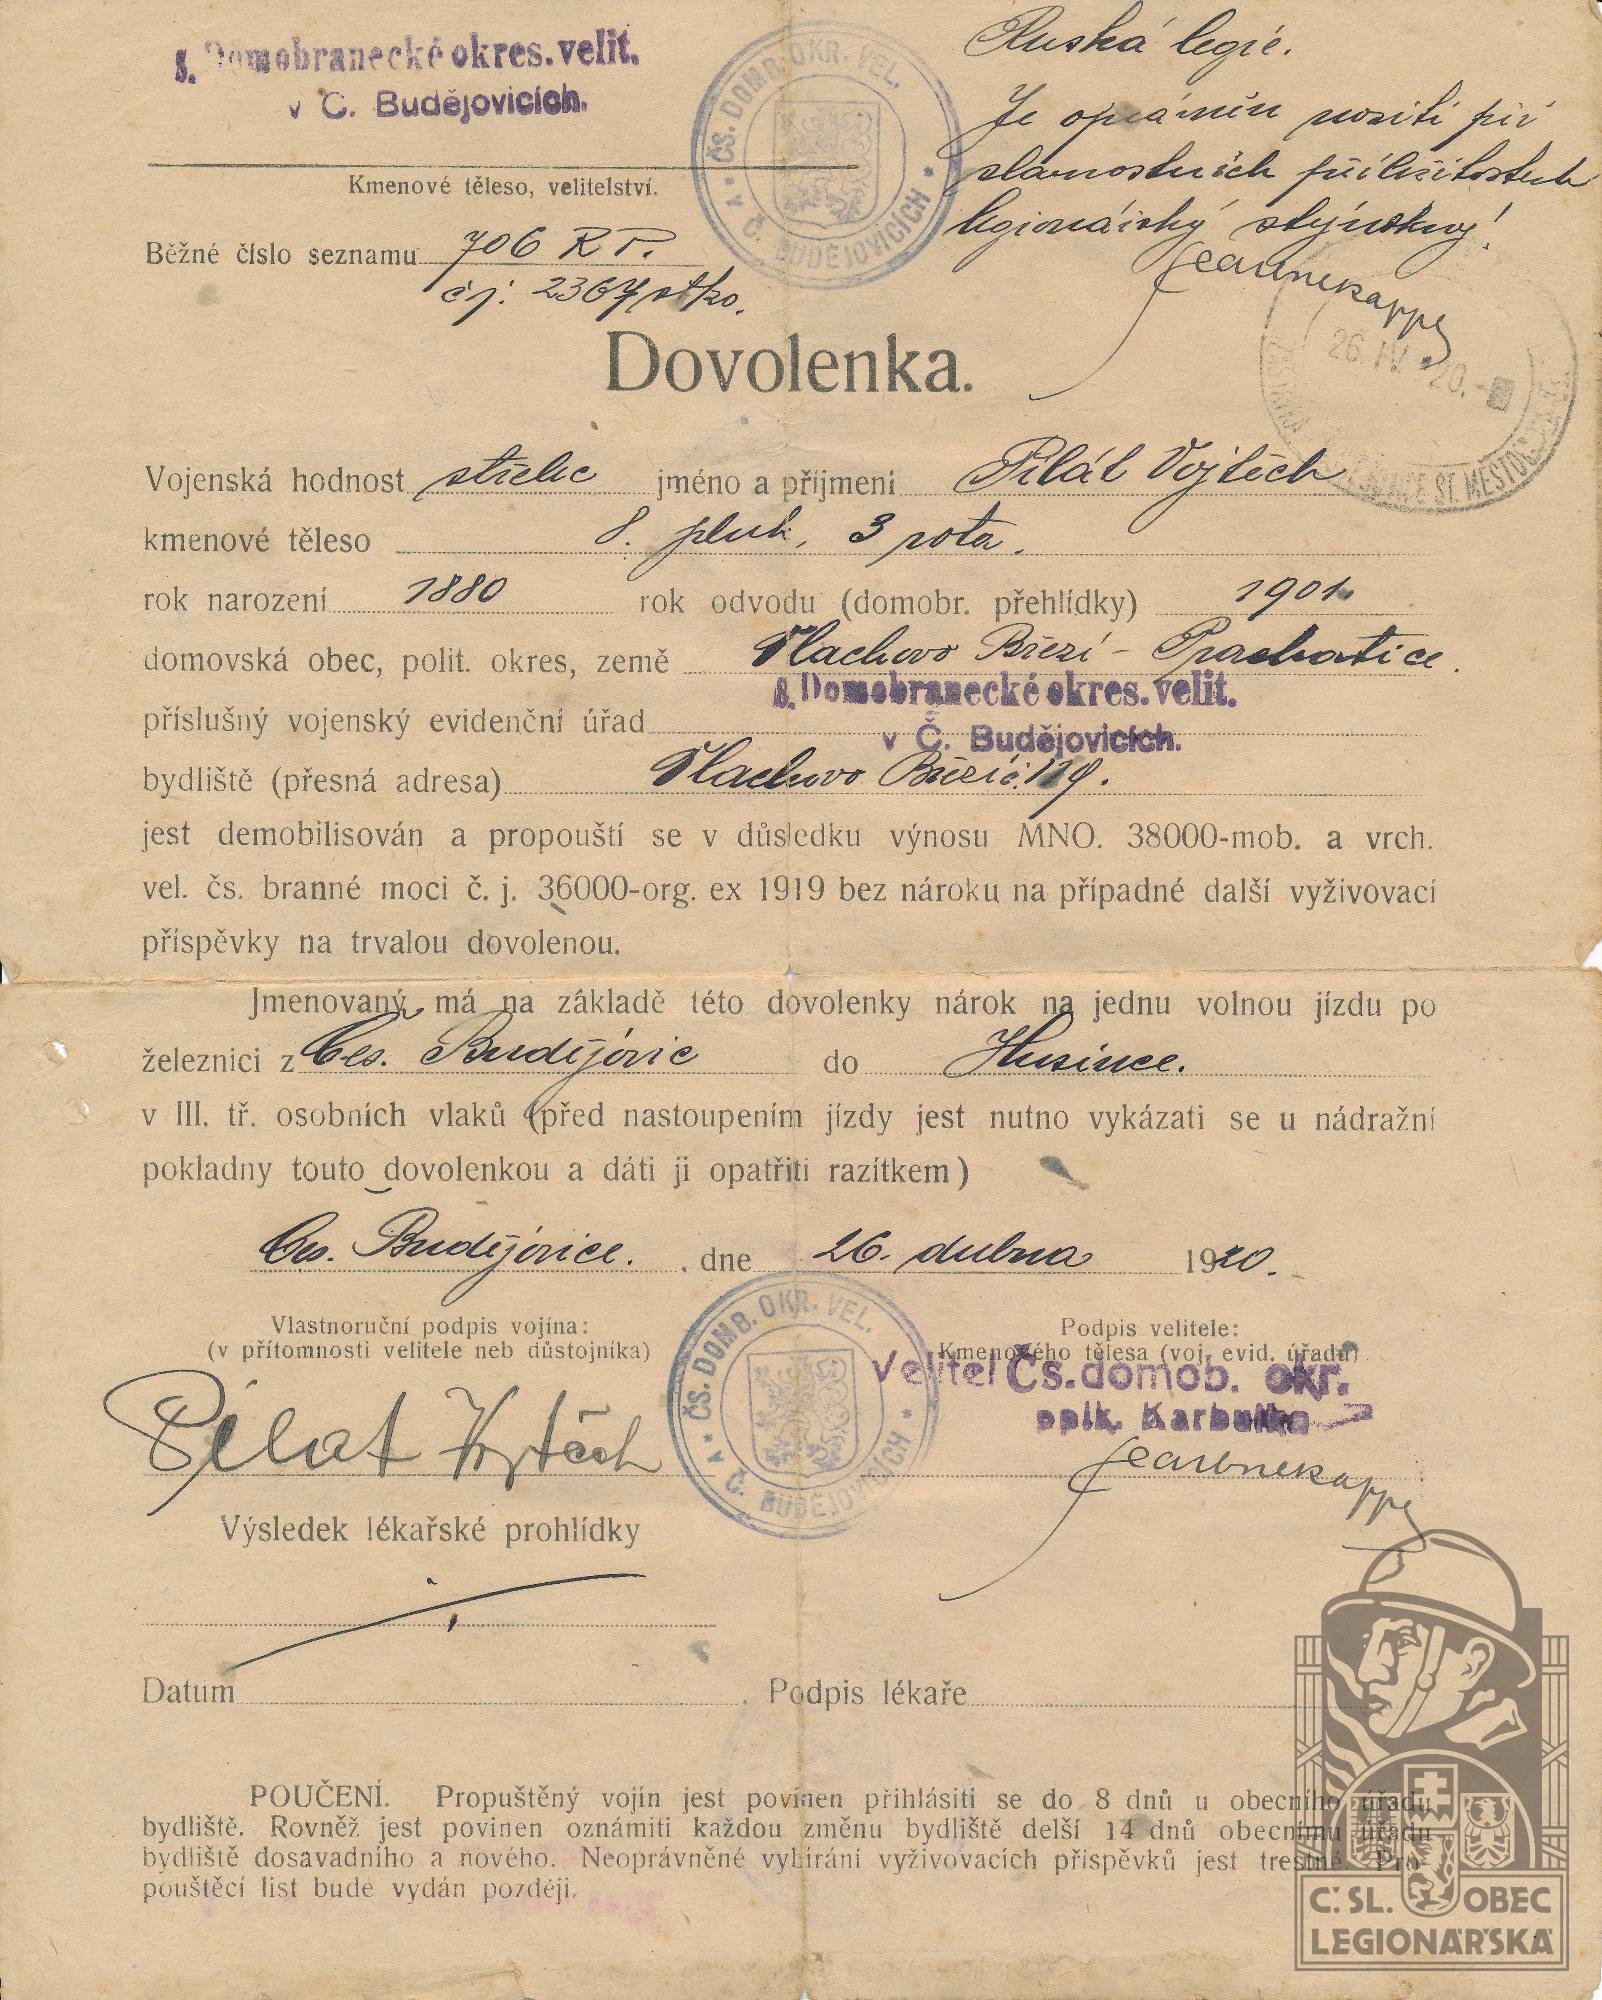 8. Domobranecké okres. velit.
v Č. Budějovicích.
Kmenové těleso, velitelství.
ČS. DOMB. OKR. VEL. V Č. BUDĚJOVICÍCH
Ruská legie.
Je oprávněn nositi při
slavnostních příležitostech
legionářský stejnokroj!
Běžné číslo seznamu 706 R P.
čj: 2367
26. IV. 20.
Dovolenka.
Vojenská hodnost střelec jméno a příjmení Pilát Vojtěch
kmenové těleso 8. pluk, 3 rota.
rok narození 1880 rok odvodu (domobr. přehlídky) 1901
domovská obec, polit. okres, země Vlachovo Březí - Prachatice.
8. Domobranecké okres. velit.
příslušný vojenský evidenční úřad
v Č. Budějovicích.
bydliště (přesná adresa) Vlachovo Březí č.
jest demobilisován a propouští se v důsledku výnosu MNO. 38000-mob. a vrch.
vel. čs. branné moci č. j. 36000-org. ex 1919 bez nároku na případné další vyživovací
příspěvky na trvalou dovolenou.
Jmenovaný má na základě této dovolenky nárok na jednu volnou jízdu po
železnici z Čes. Budějovic do Husince.
v III. tř. osobních vlaků (před nastoupením jízdy jest nutno vykázati se u nádražní
pokladny touto dovolenkou a dáti ji opatřiti razítkem)
Čes. Budějovice. , dne 26. dubna 1920.
Vlastnoruční podpis vojína:
(v přítomnosti velitele neb důstojníka)
Podpis velitele:
Kmenového tělesa (voj. evid. úřadu)
Velitel Čs. domob. okr.
pplk.
Pilat Vojtěch
ČS. DOMB. OKR. VEL. V Č. BUDĚJOVICÍCH
Výsledek lékařské prohlídky
Datum . Podpis lékaře
POUČENÍ. Propuštěný vojín jest povinen přihlásiti se do 8 dnů u obecního úřadu
bydliště. Rovněž jest povinen oznámiti každou změnu bydliště delší 14 dnů obecnímu úřadu
bydliště dosavadního a nového. Neoprávněné vybírání vyživovacích příspěvků jest trestné. Pro-
pouštěcí list bude vydán později.
Č. SL. OBEC
LEGIONÁŘSKÁ